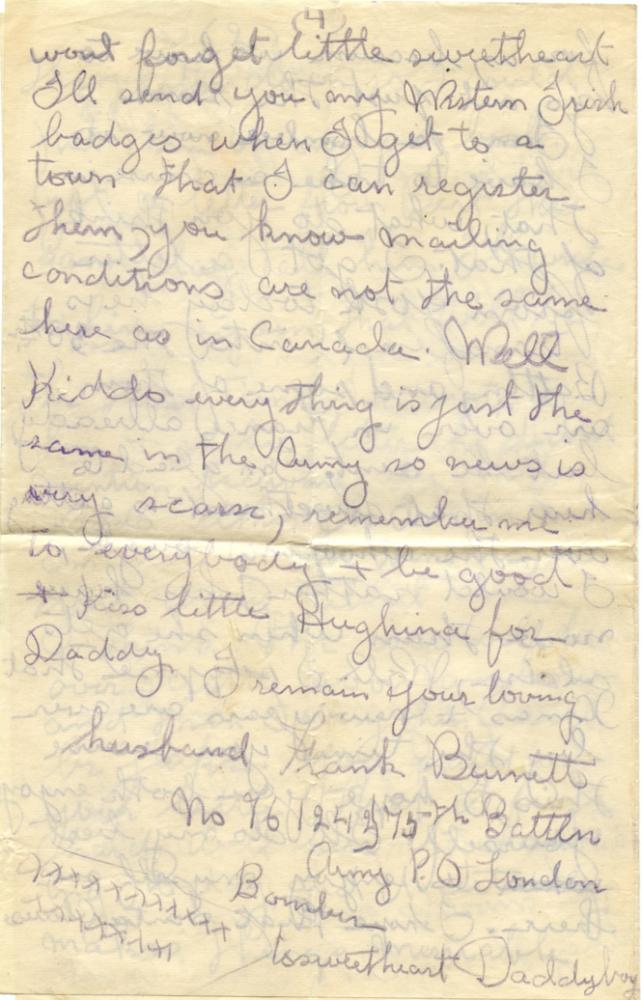 4
wont forget little sweetheart
I'll send you any Western Irish
badges when I get to a
town that I can register
them, you know mailing
conditions are not the same
here as in Canada. Well
Kiddo everything is just the
same in the Army so news is
very scarse, remember me
to everybody + be good
+ Kiss little Hughina for
Daddy I remain your loving
husband Frank Burnett
No 761242 75th Battln
Army P.O London
Bomber
xxxxxxxxxx
xxxxxxx
to sweetheart Daddyboy